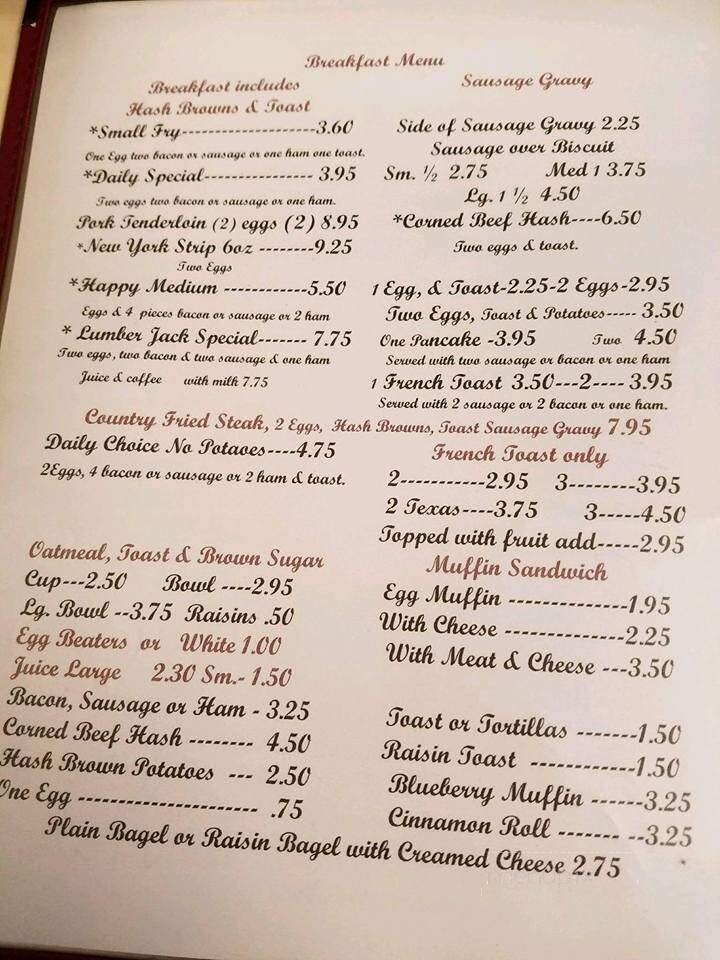 Breakfast Menu
Breakfast includes
Hash Browns & Toast
*Small Fry--------------------3.60
One Egg two bacon or sausage or one ham one toast.
*Daily Special---------------- 3.95
Two eggs two bacon or sausage or one ham.
Pork Tenderloin (2) eggs (2) 8.95
*New York Strip 6oz --------9.25
Two Eggs
*Happy Medium ------------5.50
Eggs & 4 pieces bacon or sausage or 2 ham
* Lumber Jack Special------- 7.75
Two eggs, two bacon & two sausage & one ham
Juice & coffee with milk 7.75
Sausage Gravy
Side of Sausage Gravy 2.25
Sausage over Biscuit
Sm. ½ 2.75 Med 1 3.75
Lg. 1 ½ 4.50
*Corned Beef Hash----6.50
Two eggs & toast.
1 Egg, & Toast-2.25-2 Eggs-2.95
Two Eggs, Toast & Potatoes----- 3.50
One Pancake -3.95 Two 4.50
Served with two sausage or bacon or one ham
1 French Toast 3.50---2---- 3.95
Served with 2 sausage or 2 bacon or one ham.
Country Fried Steak, 2 Eggs, Hash Browns, Toast Sausage Gravy 7.95
Daily Choice No Potaoes----4.75
2Eggs, 4 bacon or sausage or 2 ham & toast.
Oatmeal, Toast & Brown Sugar
Cup---2.50 Bowl ----2.95
Lg. Bowl --3.75 Raisins .50
Egg Beaters or White 1.00
Juice Large 2.30 Sm.- 1.50
Bacon, Sausage or Ham - 3.25
Corned Beef Hash -------- 4.50
Hash Brown Potatoes --- 2.50
One Egg --------------------- .75
French Toast only
2-----------2.95 3--------3.95
2 Texas----3.75 3-----4.50
Topped with fruit add-----2.95
Muffin Sandwich
Egg Muffin --------------1.95
With Cheese --------------2.25
With Meat & Cheese ---3.50
Toast or Tortillas -------1.50
Raisin Toast ------------1.50
Blueberry Muffin ------3.25
Cinnamon Roll ------- --3.25
Plain Bagel or Raisin Bagel with Creamed Cheese 2.75